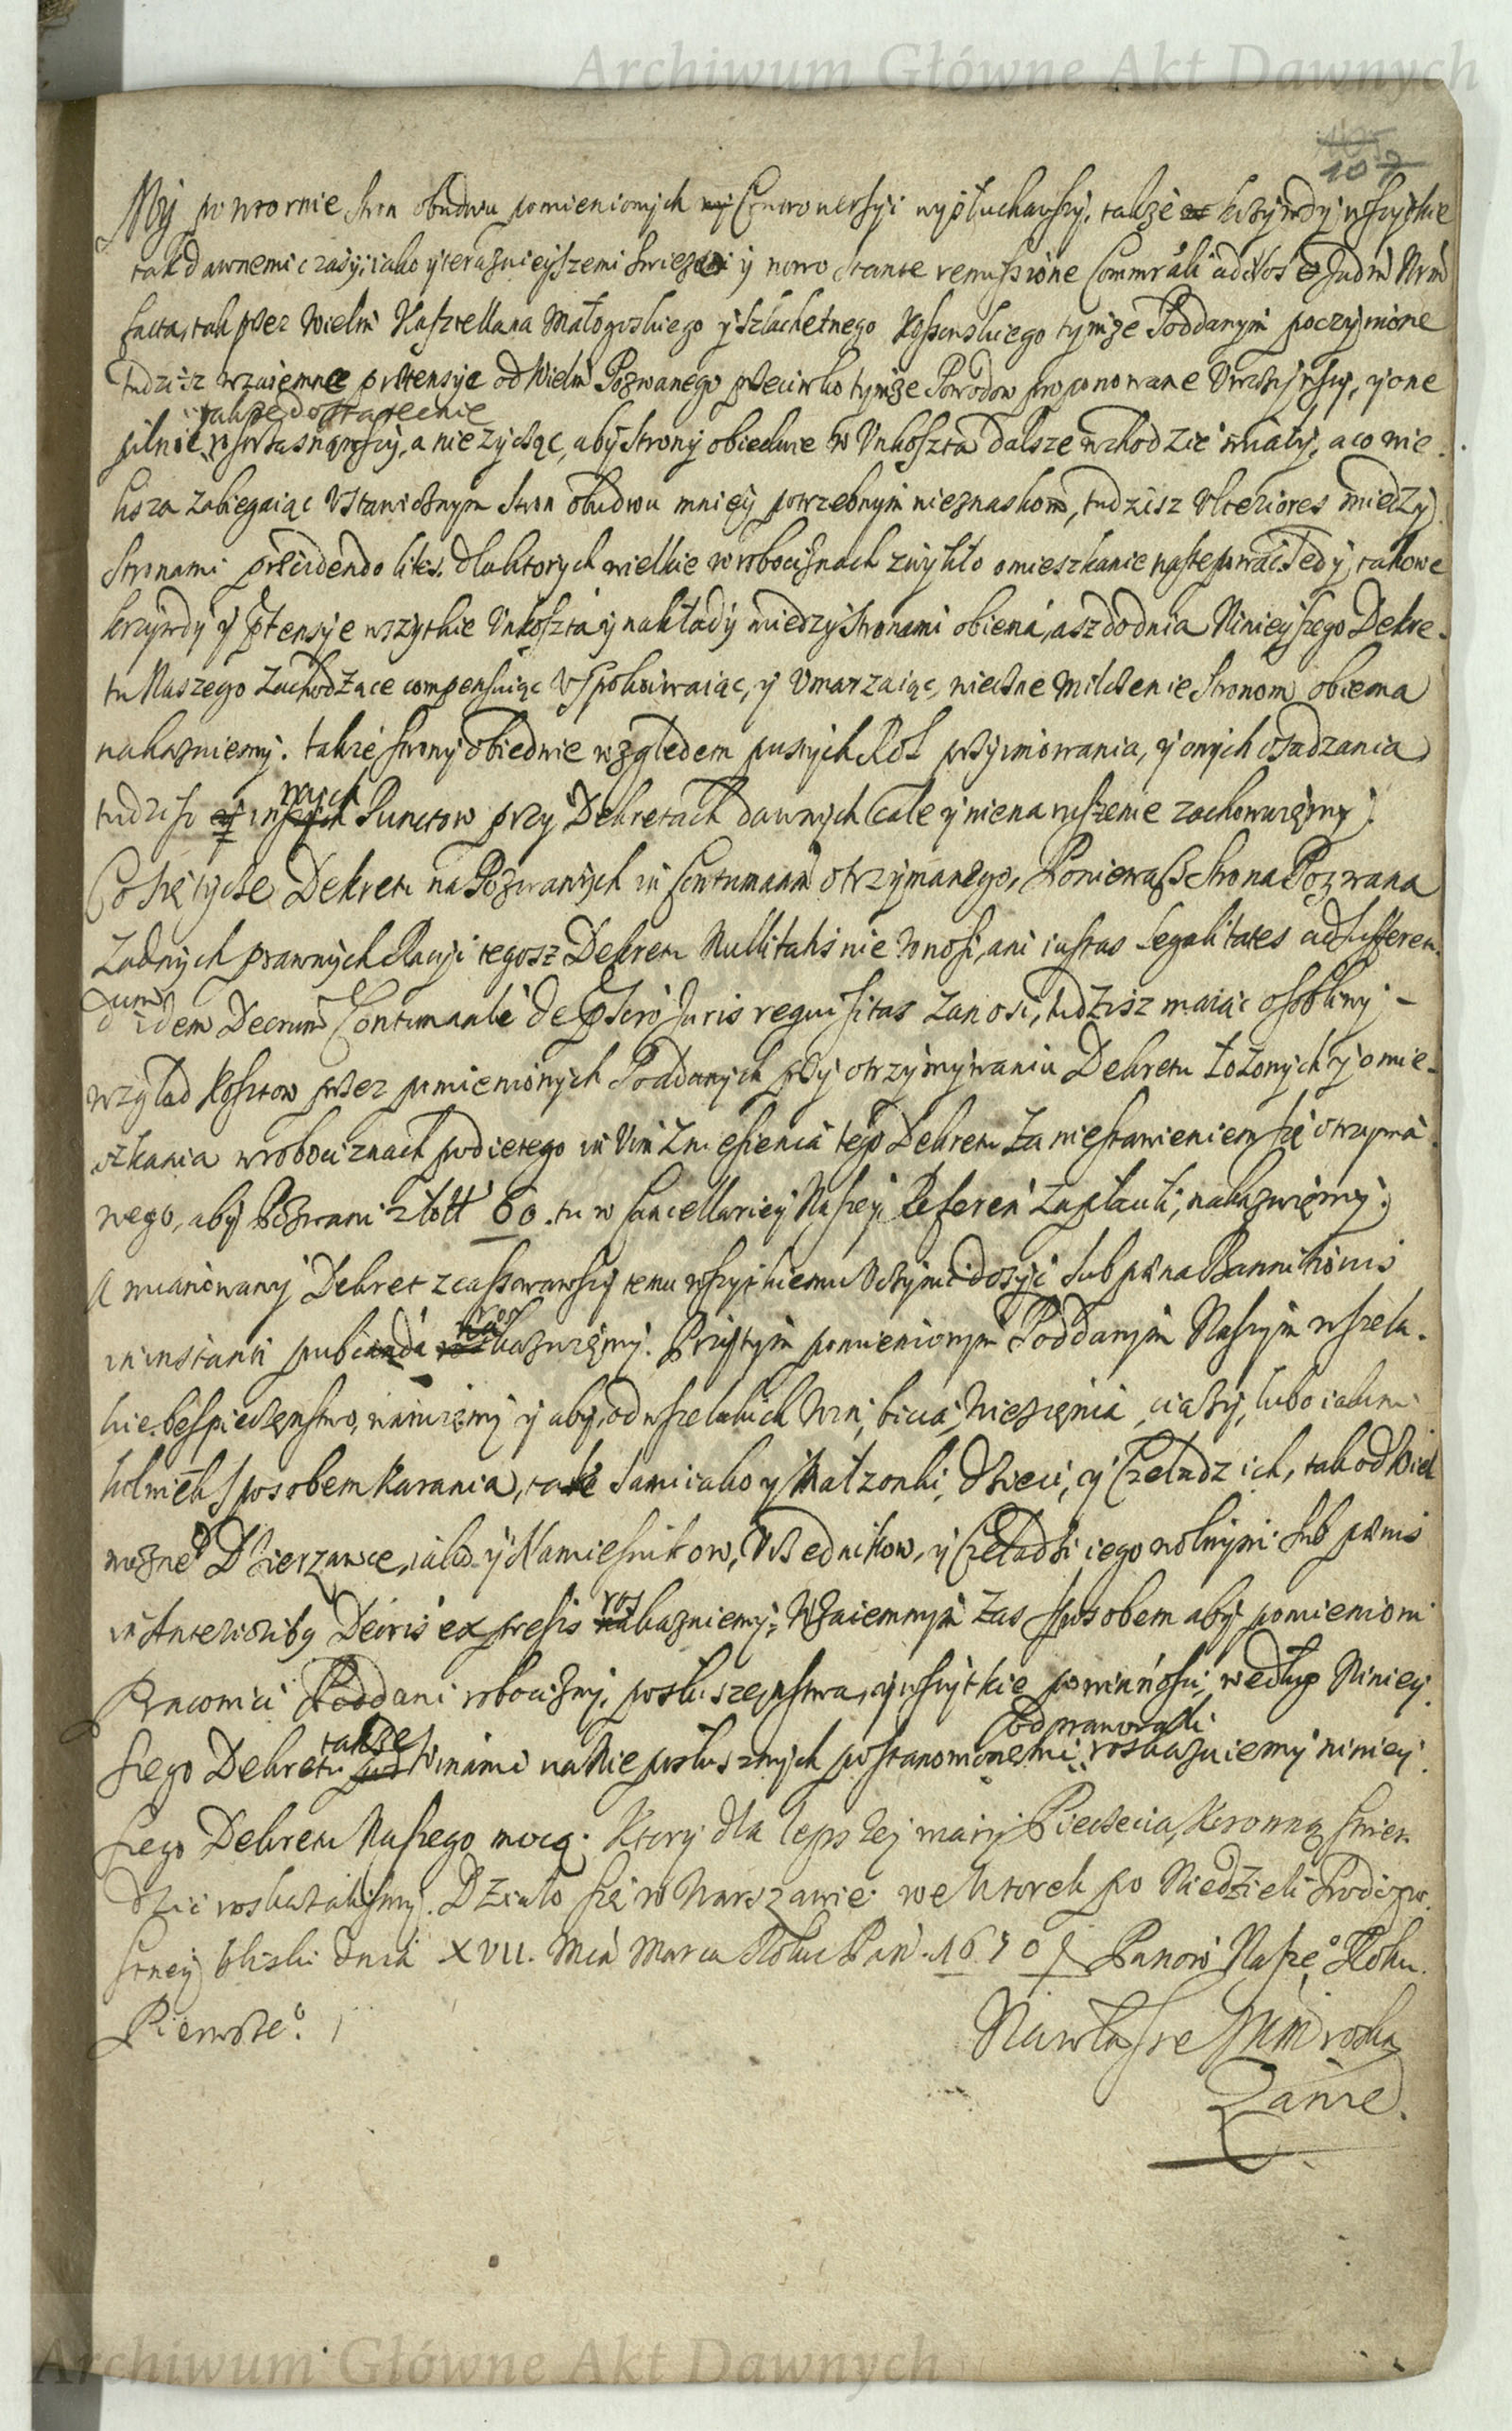 Archiwum Główne Akt Dawnych
107
My powtornie stron obudwu pomienionych Controwersyi wysłuchawszy, także krzywdy wszystkie
tak dawnemi czasy, iako y teraznieyszemi swiezo y novo stante remissione Commissriali ad Nos et Judm Nrm
facta, tak przez Wielm Kasztellana Małogoskiego y Szlachetnego tymże Poddanym poczynione
tudzisz wzaiemne prætensye od Wielm Pozwanego przeciwko tymże Powodom proponowane Uważywszy, y one
także dostatecznie
pilnie roztrząsnąwszy, a nie zycząc, aby strony obiedwie w Unkoszta dalsze wchodzić miały, a co wie-
ksza zabiegaiąc Ustawicznym stron obudwu mniey potrzebnym niesnaskom, tudzisz Ulteriores miedzy
stronami præcidendo lites, dla ktorych wielkie w robociznach zwykło omieszkanie nastepować. Tedy takowe
krzywdy y prtensye wszytkie Unkoszta y nakłady miedzy stronami obiema, asz do dnia Ninieyszego Dekre-
tu Naszego zachodzące compensuiąc Uspokaiwaiąc, y Umarzaiąc, wieczne milczenie stronom obiema
nakazuiemy. także strony obiedwie względem pustych Rol przyimowania, y onych osadzania
tudzisz inszych Punctow przy Dekretach dawnych Cale y nienaruszenie zachowuięmy.
Co się tycze Dekretu na Pozwanych in Contumaciam otrzymanego, Poniewasz strona Pozwana
Zadnych prawnych Racyi tegosz Dekretu Nullitatis nie wnosi, ani iustas legalitates ad sufferen-
dum
idem Decrum Contumatle de Pscro Juris requisitas zanosi, tudzisz maiąc osobliwy
wzgląd kosztow przez pomienionych Poddanych przy otrzymywaniu Dekretu łożonych y omie-
szkania w robociznach podietego in Vim zniesienia tego Dekretu za niestawieniem się otrzyma-
nego, aby Pozwani złott 60. tu w Cancellariey Naszey Referen zapłacili, nakazuięmy.
A mianowany Dekret zcassowawszy temu wszystkiemu Uczynic dosyć sub pæna Bannitionis
in instanti publcanda nakazuięmy. Przytym pomienionym Poddanym Naszym wszela-
kie bespieczęnstwo, waruięmy y aby, od wszelakich Win, bicia, Więzięnia, ciąży, lubo iakim
kolwiek sposobem karania, tak sami iako y Małzonki, Dzieci, y Czeladz ich, tak od Wiel
możne Dzierzawce, iako y Namiesnikow, Urzednikow, y Czeladzi iego wolnymi sub pænis
in Anterioribq Decris expressis roskazuiemy. Wzaiemnym zas sposobem aby pomienioni
Pracowici Poddani robocizny, posłuszęnstwa, y wszytkie powinności, według Niniey-
szego Dekretu także Winami na Nieposłusznych postanowionemi odprawowali roskazuiemy niniey-
szego Dekretu Naszego mocą. Ktory dla lepszey wiary Pieczecią Koronną stwier-
dzić roskazalismy. Działo się w Warszawie we Wtorek po Niedzieli Srodopo-
stney bliski Dnia XVII. Mca Marca Roku Pan. 1670 Panowa Nasze Roku.
Pierwsze.
Na własne JKM roska
zanie.
Archiwum Główne Akt Dawnych